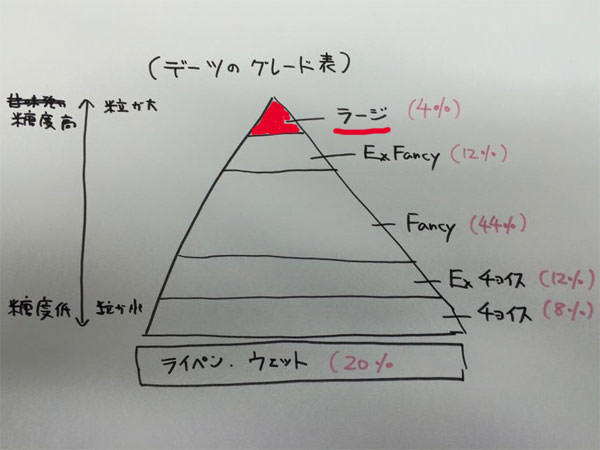 (デーツのグレード表)
糖度高
粒が大
ラージ (4%)
Ex Fancy (12%)
Fancy (44%)
Ex チョイス (12%)
糖度低
粒が小
チョイス (8%)
ライペン.ウェット (20%